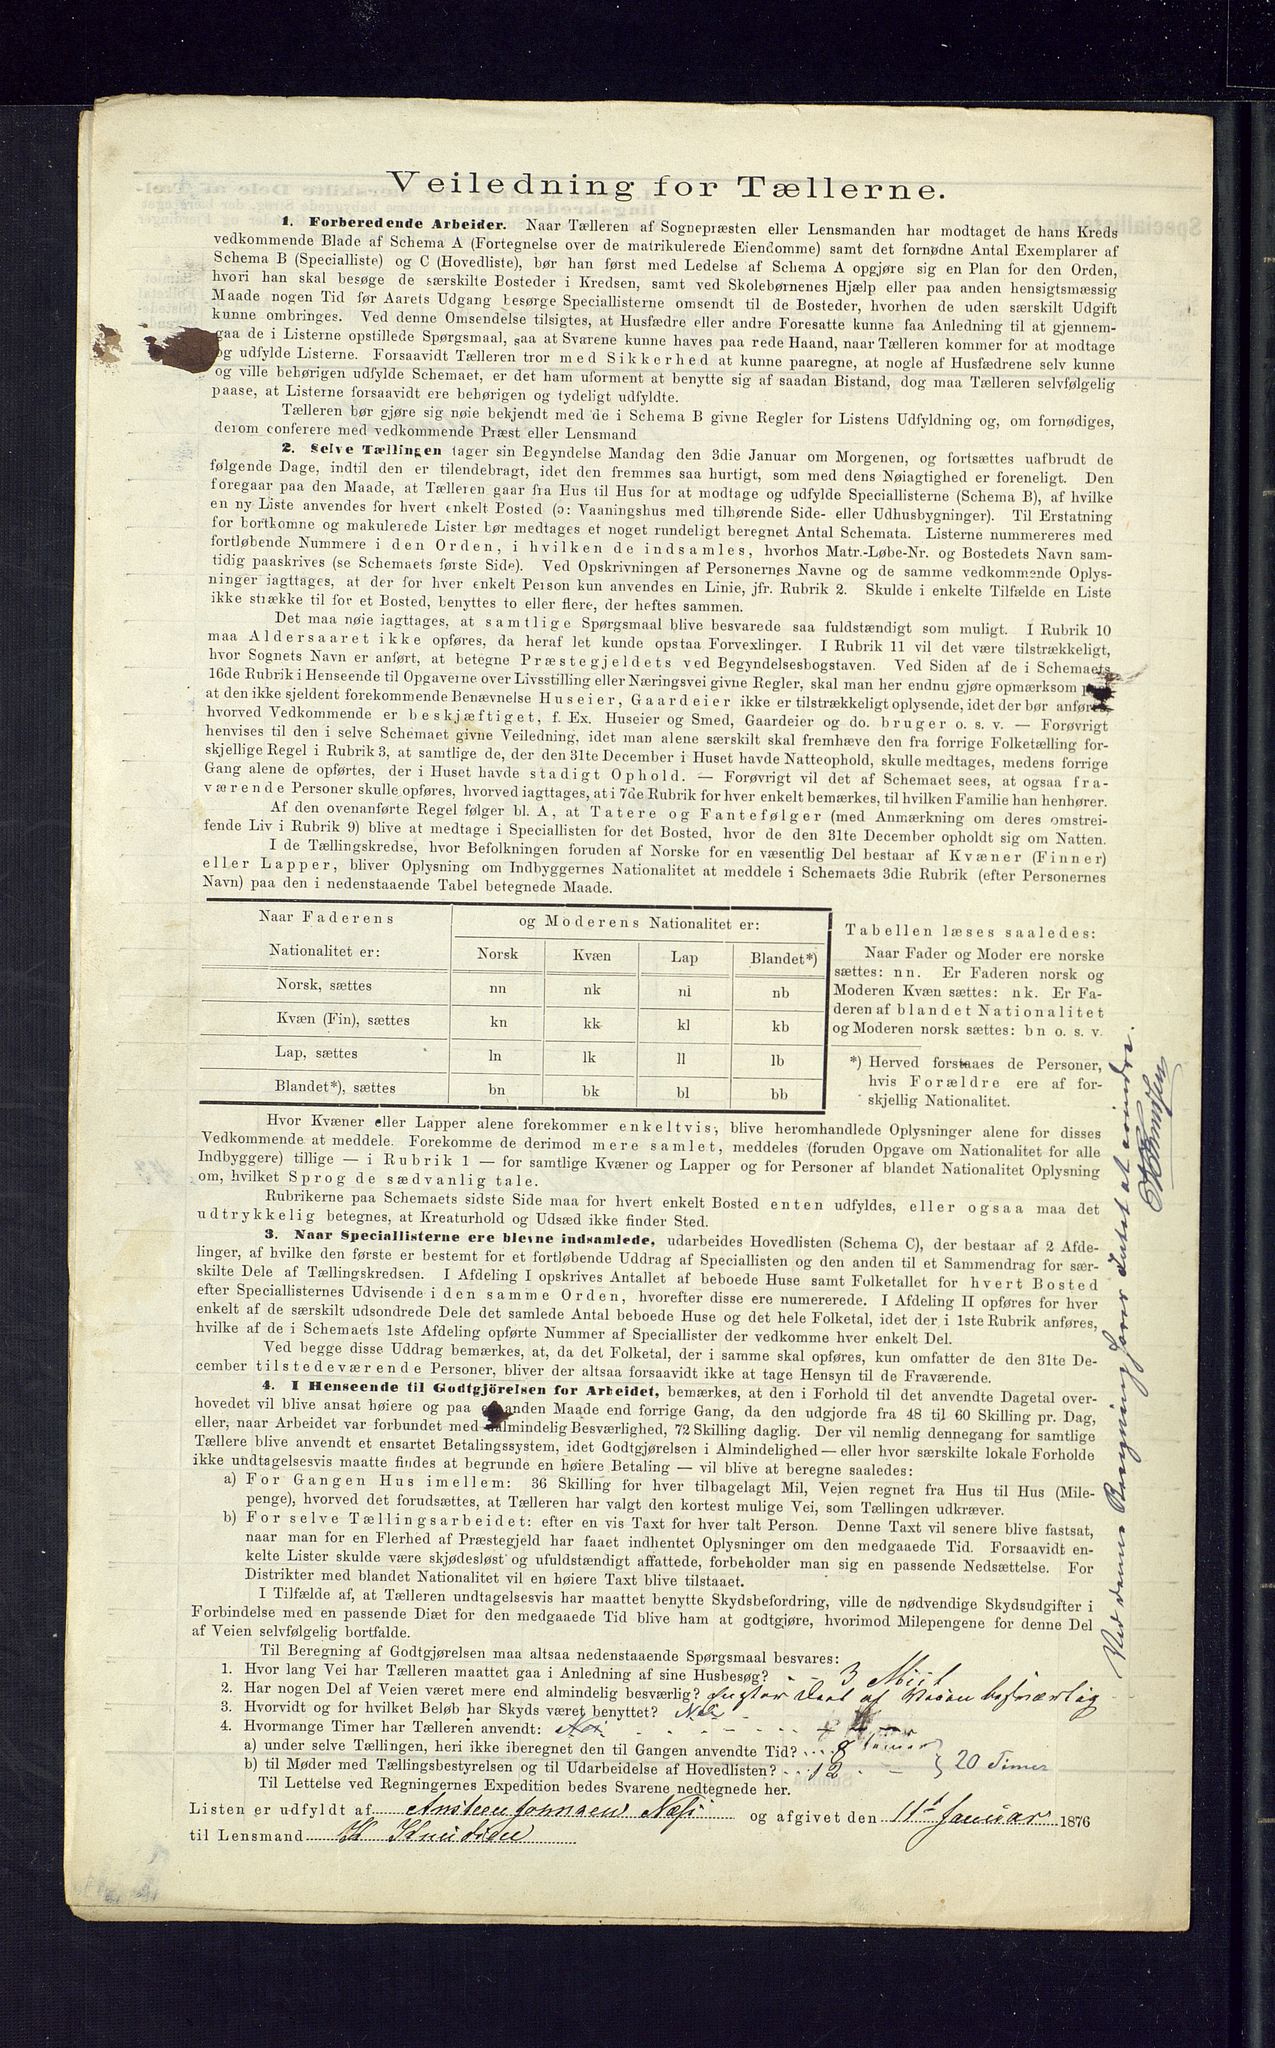 Veiledning for Tællerne.
1. Forberedende Arbeider. Naar Tælleren af Sognepræsten eller Lensmanden har modtaget de hans Kreds
vedkommende Blade af Schema A (Fortegnelse over de matrikulerede Eiendomme) samt det fornødne Antal Exemplarer af
Schema B (Specialliste) og C (Hovedliste), bør han først med Ledelse af Schema A opgjøre sig en Plan for den Orden,
hvori han skal besøge de særskilte Bosteder i Kredsen, samt ved Skolebørnenes Hjælp eller paa anden hensigtsmæssig
Maade nogen Tid før Aarets Udgang besørge Speciallisterne omsendt til de Bosteder, hvorhen de uden særskilt Udgift
kunne ombringes. Ved denne Omsendelse tilsigtes, at Husfædre eller andre Foresatte kunne faa Anledning til at gjennem-
gaa de i Listerne opstillede Spørgsmaal, saa at Svarene kunne haves paa rede Haand, naar Tælleren kommer for at modtage
og udfylde Listerne. Forsaavidt Tælleren tror med Sikkerhed at kunne paaregne, at nogle af Husfædrene selv kunne
og ville behørigen udfylde Schemaet, er det ham uforment at benytte sig af saadan Bistand, dog maa Tælleren selvfølgelig
paase, at Listerne forsaavidt ere behørigen og tydeligt udfyldte.
Tælleren bør gjøre sig nøie bekjendt med de i Schema B givne Regler for Listens Udfyldning og, om fornødiges,
derom conferere med vedkommende Præst eller Lensmand
2. Selve Tællingen tager sin Begyndelse Mandag den 3die Januar om Morgenen, og fortsættes uafbrudt de
følgende Dage, indtil den er tilendebragt, idet den fremmes saa hurtigt, som med dens Nøiagtighed er foreneligt. Den
foregaar paa den Maade, at Tælleren gaar fra Hus til Hus for at modtage og udfylde Speciallisterne (Schema B), af hvilke
en ny Liste anvendes for hvert enkelt Bosted (ɔ: Vaaningshus med tilhørende Side- eller Udhusbygninger). Til Erstatning
for bortkomne og makulerede Lister bør medtages et noget rundeligt beregnet Antal Schemata. Listerne nummereres med
fortløbende Nummere i den Orden, i hvilken de indsamles, hvorhos Matr.-Løbe-Nr. og Bostedets Navn sam-
tidig paaskrives (se Schemaets første Side). Ved Opskrivningen af Personernes Navne og de samme vedkommende Oplys-
ninger iagttages, at der for hver enkelt Person kun anvendes en Linie, jfr. Rubrik 2. Skulde i enkelte Tilfælde en Liste
ikke strække til for et Bosted, benyttes to eller flere, der heftes sammen.
Det maa nøie iagttages, at samtlige Spørgsmaal blive besvarede saa fuldstændigt som muligt. I Rubrik 10
maa Aldersaaret ikke opføres, da heraf let kunde opstaa Forvexlinger. I Rubrik 11 vil det være tilstrækkeligt,
hvor Sognets Navn er anført, at betegne Præstegjeldets ved Begyndelsesbogstaven. Ved Siden af de i Schemaets
16de Rubrik i Henseende til Opgaverne over Livsstilling eller Næringsvei givne Regler, skal man her endnu gjøre opmærksom
at den ikke sjeldent forekommende Benævnelse Huseier, Gaardeier ikke er tilstrækkeligt oplysende, idet der bør anføres,
hvorved Vedkommende er beskjæftiget, f. Ex. Huseier og Smed, Gaardeier og do. bruger o. s. v. — Forøvrigt
henvises til den i selve Schemaet givne Veiledning, idet man alene særskilt skal fremhæve den fra forrige Folketælling for-
skjellige Regel i Rubrik 3, at samtlige de, der den 31te December i Huset havde Natteophold, skulle medtages, medens forrige
Gang alene de opførtes, der i Huset havde stadigt Ophold. — Forøvrigt vil det af Schemaet sees, at ogsaa fra-
værende Personer skulle opføres, hvorved iagttages, at i 7de Rubrik for hver enkelt bemærkes, til hvilken Familie han henhører.
Af den ovenanførte Regel følger bl. A, at Tatere og Fantefølger (med Anmærkning om deres omstrei-
fende Liv i Rubrik 9) blive at medtage i Speciallisten for det Bosted, hvor de den 31te December opholdt sig om Natten.
I de Tællingskredse, hvor Befolkningen foruden af Norske for en væsentlig Del bestaar af Kvæner (Finner)
eller Lapper, bliver Oplysning om Indbyggernes Nationalitet at meddele i Schemaets 3die Rubrik (efter Personernes
Navn) paa den i nedenstaaende Tabel betegnede Maade.
Naar Faderens Nationalitet er: og Moderens Nationalitet er:
Norsk Kvæn Lap Blandet*)
Norsk, sættes nn nk nl nb
Kvæn (Fin), sættes kn kk kl kb
Lap, sættes ln lk ll lb
Blandet*), sættes bn bk bl bb
Tabellen læses saaledes:
Naar Fader og Moder ere norske
sættes: nn. Er Faderen norsk og
Moderen Kvæn sættes: nk. Er Fa-
deren af blandet Nationalitet
og Moderen norsk sættes: bn o. s. v.
*) Herved forstaaes de Personer,
hvis Forældre ere af for-
skjellig Nationalitet.
Hvor Kvæner eller Lapper alene forekommer enkeltvis, blive heromhandlede Oplysninger alene for disses
Vedkommende at meddele. Forekomme de derimod mere samlet, meddeles (foruden Opgave om Nationalitet for alle
Indbyggere) tillige — i Rubrik 1 — for samtlige Kvæner og Lapper og for Personer af blandet Nationalitet Oplysning
om, hvilket Sprog de sædvanlig tale.
Rubrikerne paa Schemaets sidste Side maa for hvert enkelt Bosted enten udfyldes, eller ogsaa maa det
udtrykkelig betegnes, at Kreaturhold og Udsæd ikke finder Sted.
3. Naar Speciallisterne ere blevne indsamlede, udarbeides Hovedlisten (Schema C), der bestaar af 2 Afde-
linger, af hvilke den første er bestemt for et fortløbende Uddrag af Speciallisten og den anden til et Sammendrag for sær-
skilte Dele af Tællingskredsen. I Afdeling I opskrives Antallet af beboede Huse samt Folketallet for hvert Bosted
efter Speciallisternes Udvisende i den samme Orden, hvorefter disse ere numererede. I Afdeling II opføres for hver
enkelt af de særskilt udsondrede Dele det samlede Antal beboede Huse og det hele Folketal, idet der i 1ste Rubrik anføres,
hvilke af de i Schemaets 1ste Afdeling opførte Nummer af Speciallister der vedkomme hver enkelt Del.
Ved begge disse Uddrag bemærkes, at, da det Folketal, der i samme skal opføres, kun omfatter de den 31te De-
cember tilstedeværende Personer, bliver der altsaa forsaavidt ikke at tage Hensyn til de Fraværende.
4. I Henseende til Godtgjörelsen for Arbeidet, bemærkes, at den i Forhold til det anvendte Dagetal over-
hovedet vil blive ansat høiere og paa en anden Maade end forrige Gang, da den udgjorde fra 48 til 60 Skilling pr. Dag,
eller, naar Arbeidet var forbundet med ualmindelig Besværlighed, 72 Skilling daglig. Der vil nemlig dennegang for samtlige
Tællere blive anvendt et ensartet Betalingssystem, idet Godtgjørelsen i Almindelighed — eller hvor særskilte lokale Forholde
ikke undtagelsesvis maatte findes at begrunde en høiere Betaling — vil blive at beregne saaledes:
a) For Gangen Hus imellem: 36 Skilling for hver tilbagelagt Mil, Veien regnet fra Hus til Hus (Mile-
penge), hvorved det forudsættes, at Tælleren har valgt den kortest mulige Vei, som Tællingen udkræver.
b) For selve Tællingsarbeidet: efter en vis Taxt for hver talt Person. Denne Taxt vil senere blive fastsat,
naar man for en Flerhed af Præstegjeld har faaet indhentet Oplysninger om den medgaaede Tid. Forsaavidt en-
kelte Lister skulde være skjødesløst og ufuldstændigt affattede, forbeholder man sig en passende Nedsættelse. For
Distrikter med blandet Nationalitet vil en høiere Taxt blive tilstaaet.
I Tilfælde af, at Tælleren undtagelsesvis har maattet benytte Skydsbefordring, ville de nødvendige Skydsudgifter i
Forbindelse med en passende Diæt for den medgaaede Tid blive ham at godtgjøre, hvorimod Milepengene for denne Del
af Veien selvfølgelig bortfalde.
Til Beregning af Godtgjørelsen maa altsaa nedenstaaende Spørgsmaal besvares:
1. Hvor lang Vei har Tælleren maattet gaa i Anledning af sine Husbesøg? 3 Miil
2. Har nogen Del af Veien været mere end almindelig besværlig? Deel af Veien besværlig
3. Hvorvidt og for hvilket Beløb har Skyds været benyttet? Nei
4. Hvormange Timer har Tælleren anvendt:
a) under selve Tællingen, heri ikke iberegnet den til Gangen anvendte Tid? 8 Timer
b) til Møder med Tællingsbestyrelsen og til Udarbeidelse af Hovedlisten? 12 } 20 Timer
Til Lettelse ved Regningernes Expedition bedes Svarene nedtegnede her.
Listen er udfyldt af Ansteen Næss og afgivet den 11te Januar 1876
til Lensmand Knudsen
Ved denne Beregning haves Intet at erindre.